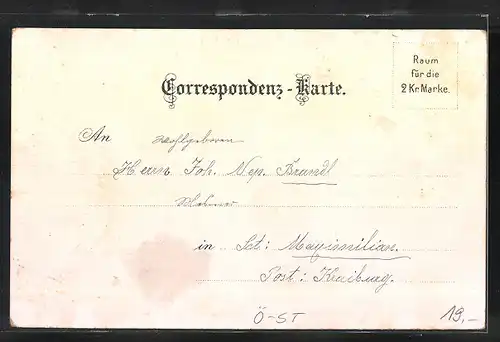 Correspondenz-Karte.
Raum
für die
2 Kr. Marke.
An Wohlgeboren
Herrn Joh. Nep. Brandl
in Sct: Maximilian.
Post: Kraiburg.
Ö-ST
19,-